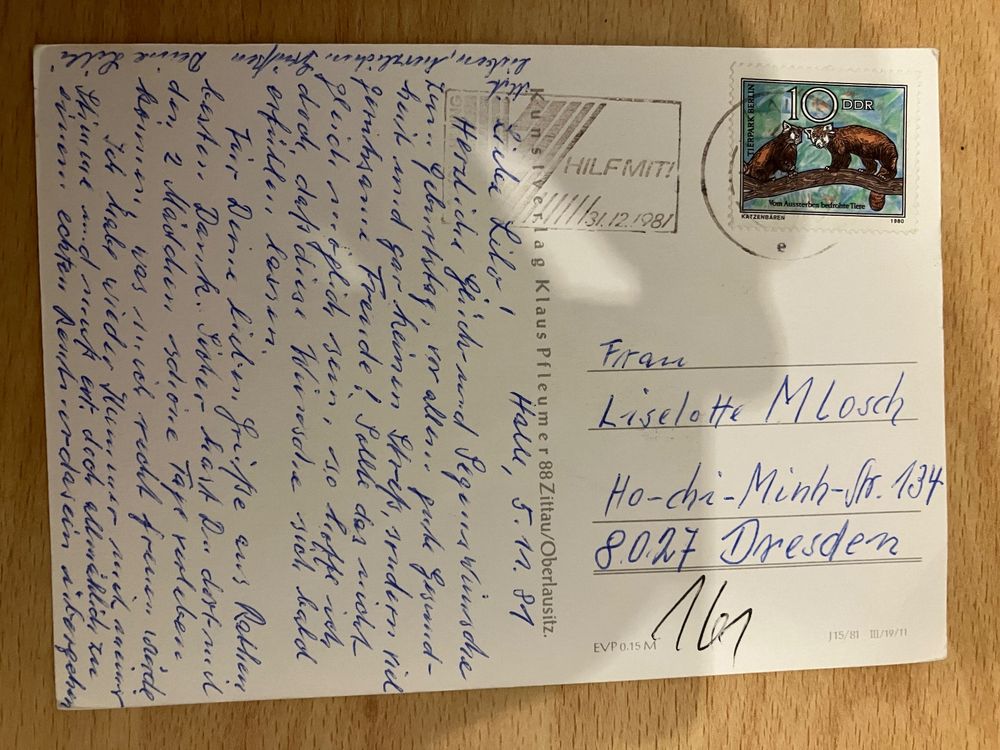 Halle, 5.11.81
Liebe Lilo!
Herzliche Glück- und Segenswünsche
zum Geburtstag, vor allem gute Gesund-
heit und gar keinen Streß, sondern viel
gemeinsame Freude! Sollte das nicht
gleich möglich sein, so hoffe ich
doch, daß diese Wünsche sich bald
erfüllen lassen.
Für Deine lieben Grüße aus Rathen
besten Dank. Sicher hast Du dort mit
den 2 Mädchen schöne Tage verleben
können, was mich recht freuen würde.
Ich habe wieder Kummer mit meiner
Stimme und muß evt. doch allmählich zu
einem echten Rentnerdasein übergehen
Mit
lieben, herzlichen Grüßen
Deine Lilli
Kunstverlag Klaus Pfleumer 88 Zittau/Oberlausitz.
HILF MIT!
31.12.1981
e
TIERPARK BERLIN
10 DDR
Vom Aussterben bedrohte Tiere
KATZENBÄREN 1980
Frau
Liselotte MLosch
Ho-chi-Minh-Str. 134
8027 Dresden
EVP 0.15 M
J 15/81 III/19/11